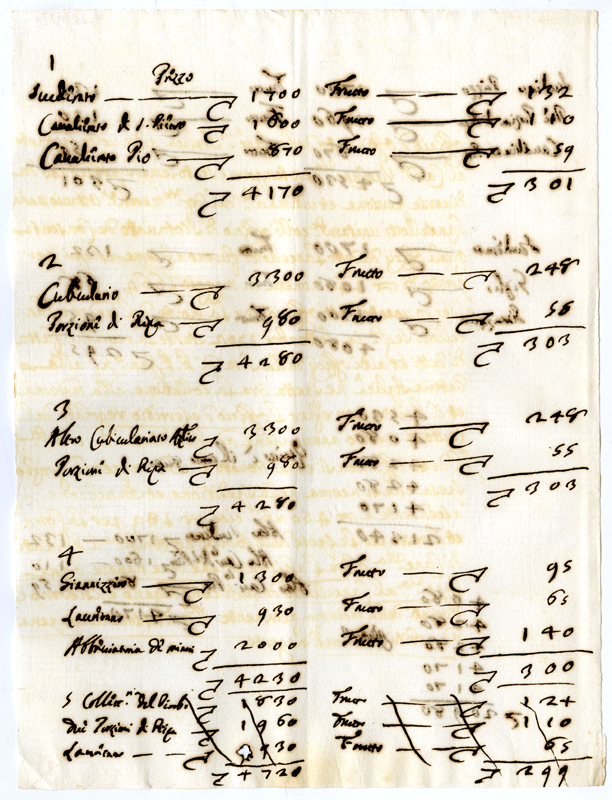 1
Prezzo
1700 Frutto 132
Cavalierato di S. Pietro 1600 Frutto 110
Cavalierato Pio 870 Frutto 59
4170 301
2
Cubiculario 3300 Frutto 248
Porzioni di Ripa 980 Frutto 55
4280 303
3
Altro Cubiculariato 3300 Frutto 248
Porzioni di Ripa 980 Frutto 55
4280 303
4
Giannizzero 1300 Frutto 95
930 Frutto 65
2000 Frutto 140
4230 300
5 del Piombo 1830 Frutto 124
Due Porzioni di Ripa 1960 Frutto 110
930 Frutto 65
4720 299